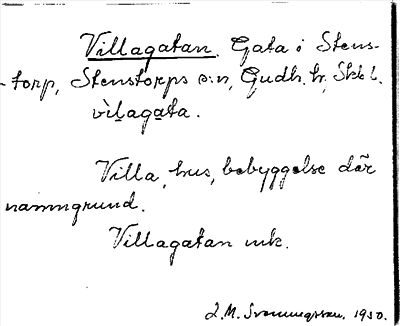 Villagatan. Gata i Stens-
torp, Stenstorps s:n, Gudh. hr, Skbl.
vìlagata.
Villa, hus, bebyggelse där
namngrund.
Villagatan mk.
J.M. Svenningsson. 1930.